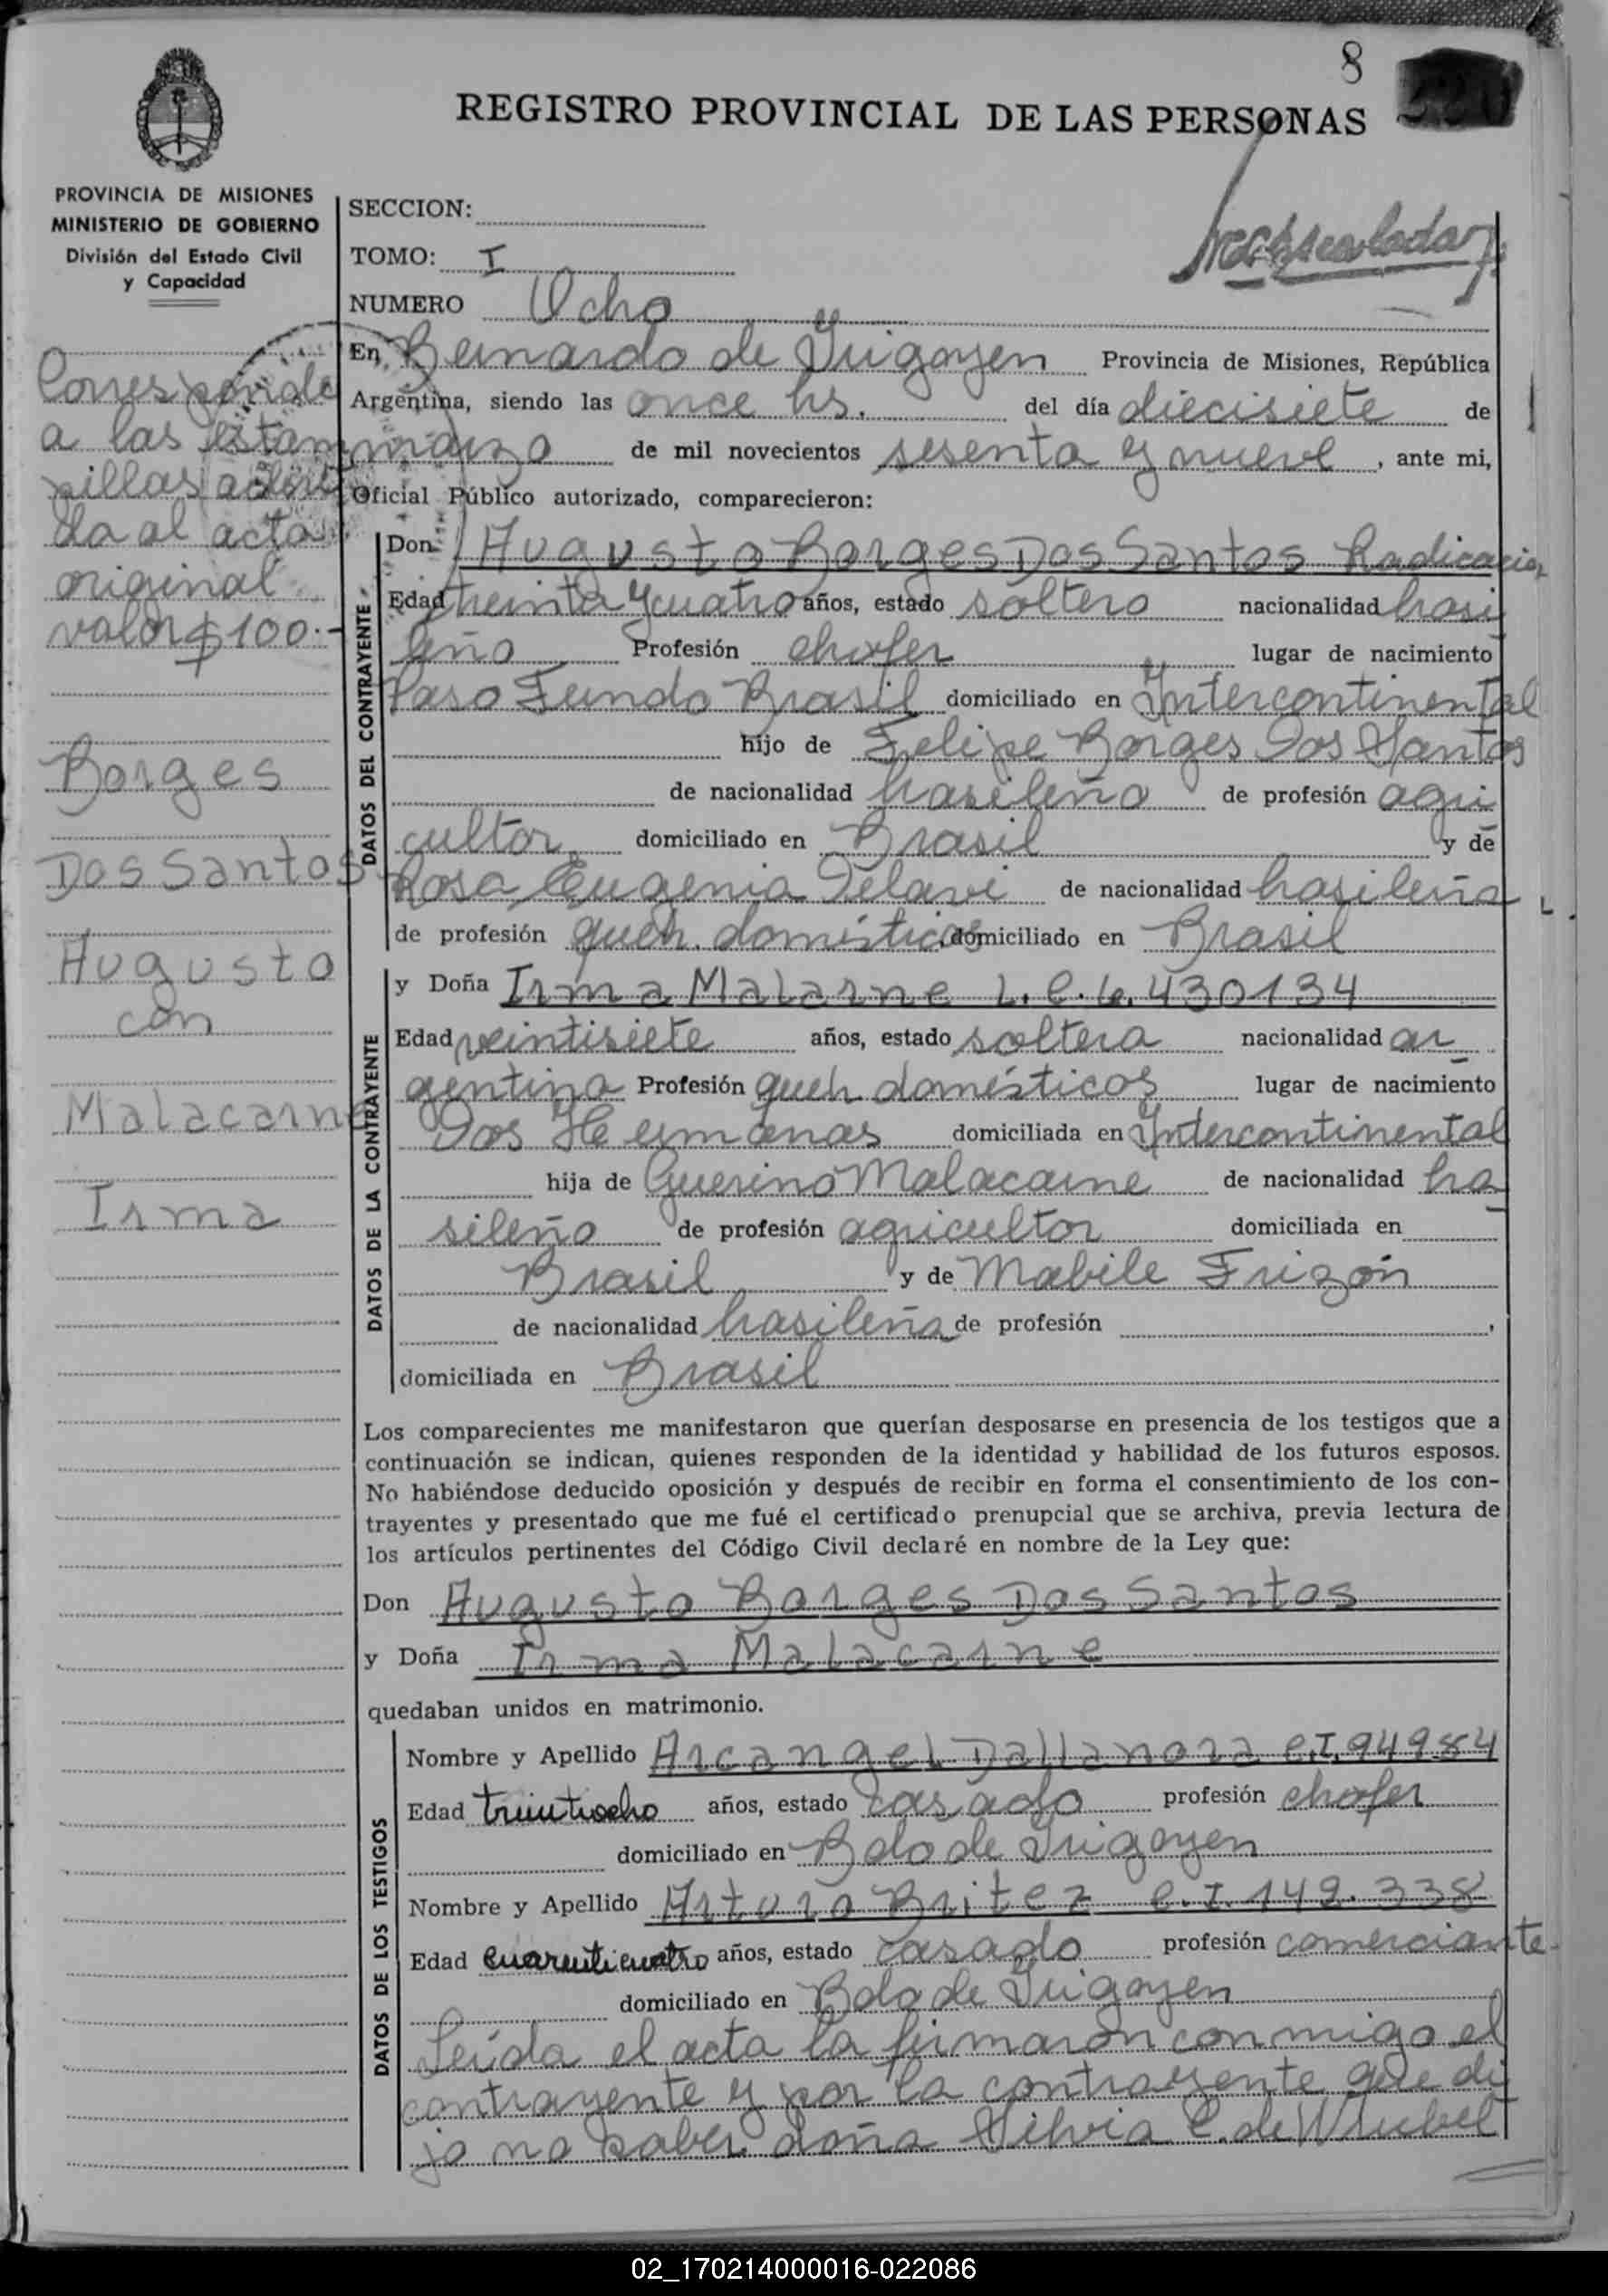 8
REGISTRO PROVINCIAL DE LAS PERSONAS
PROVINCIA DE MISIONES
MINISTERIO DE GOBIERNO
División del Estado Civil
y Capacidad
Corresponde
a las estam
pillas adheri
da al acta
original
valor $100.-
Borges
Dos Santos
Augusto
con
Malacarne
Irma
SECCION:
TOMO: I
NUMERO Ocho
En Bernardo de Irigoyen Provincia de Misiones, República
Argentina, siendo las once hs. del día diecisiete de
marzo de mil novecientos sesenta y nueve, ante mi,
Oficial Público autorizado, comparecieron:
DATOS DEL CONTRAYENTE
Don Augusto Borges Dos Santos Radicacion
Edad treinta y cuatro años, estado soltero nacionalidad brasi
leño Profesión chofer lugar de nacimiento
Paso Fundo Brasil domiciliado en Intercontinental
hijo de Felipe Borges Dos Santos
de nacionalidad brasileño de profesión agri
cultor domiciliado en Brasil y de
Rosa Eugenia de nacionalidad brasileña
de profesión queh. domésticos domiciliado en Brasil
DATOS DE LA CONTRAYENTE
y Doña Irma Malarne L.C. 6.430134
Edad veintisiete años, estado soltera nacionalidad ar
gentina Profesión queh. domésticos lugar de nacimiento
Dos Hermanas domiciliada en Intercontinental
hija de Guerino Malacarne de nacionalidad bra
sileño de profesión agricultor domiciliada en
Brasil y de Mabile Frizón
de nacionalidad brasileña de profesión ,
domiciliada en Brasil
Los comparecientes me manifestaron que querían desposarse en presencia de los testigos que a
continuación se indican, quienes responden de la identidad y habilidad de los futuros esposos.
No habiéndose deducido oposición y después de recibir en forma el consentimiento de los con-
trayentes y presentado que me fué el certificado prenupcial que se archiva, previa lectura de
los artículos pertinentes del Código Civil declaré en nombre de la Ley que:
Don Augusto Borges Dos Santos
y Doña Irma Malacarne
quedaban unidos en matrimonio.
DATOS DE LOS TESTIGOS
Nombre y Apellido Arcangel Dallanora C.I. 94984
Edad treintiocho años, estado casado profesión chofer
domiciliado en Bdo de Irigoyen
Nombre y Apellido Arturo Britez C.I. 149.338
Edad cuarenticuatro años, estado casado profesión comerciante
domiciliado en Bdo de Irigoyen
Leída el acta la firmaron conmigo el
contrayente y por la contrayente que di
jo no saber doña Silvia C. de Wrubel
02_170214000016-022086